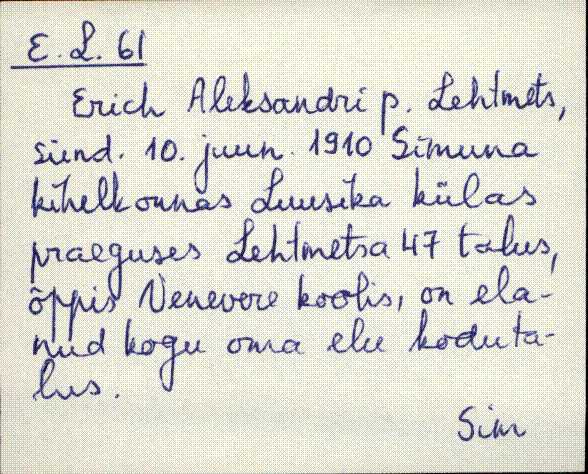 E. L. 61
Erich Aleksandri p. Lehtmets,
sünd. 10. juun. 1910 Simuna
kihelkonnas Luusika külas
praeguses Lehtmetsa 47 talus,
õppis Venevere koolis, on ela-
nud kogu oma elu koduta-
lus.
Sim